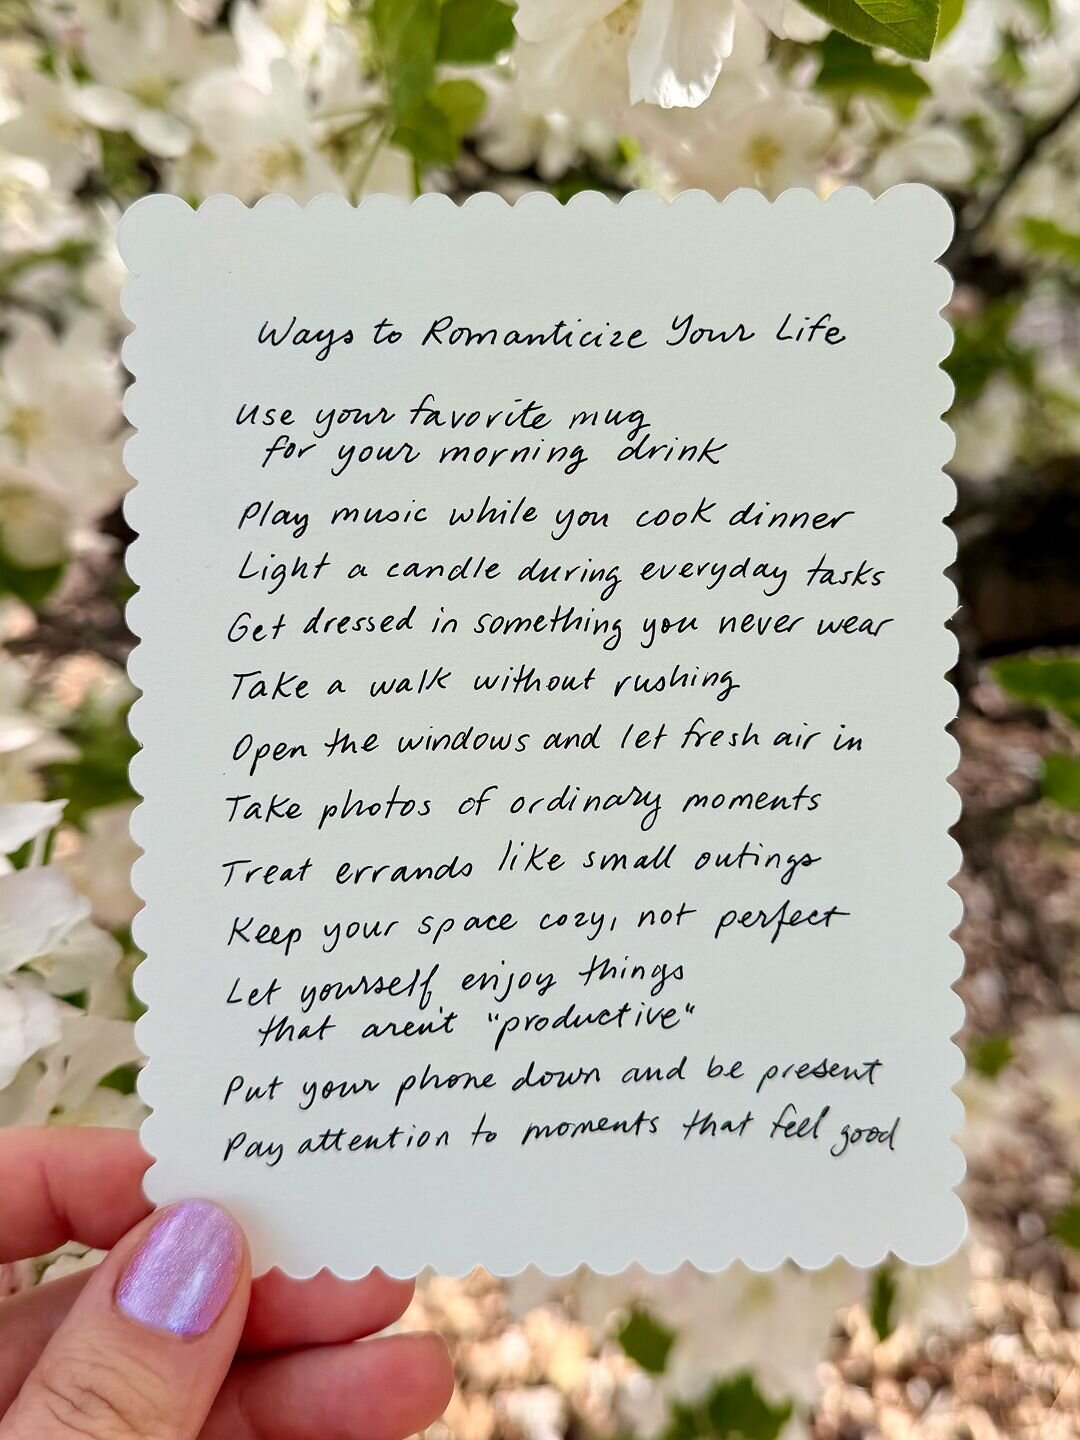 Ways to Romanticize Your Life
Use your favorite mug
for your morning drink
Play music while you cook dinner
Light a candle during everyday tasks
Get dressed in something you never wear
Take a walk without rushing
Open the windows and let fresh air in
Take photos of ordinary moments
Treat errands like small outings
Keep your space cozy, not perfect
Let yourself enjoy things
that aren't "productive"
Put your phone down and be present
Pay attention to moments that feel good